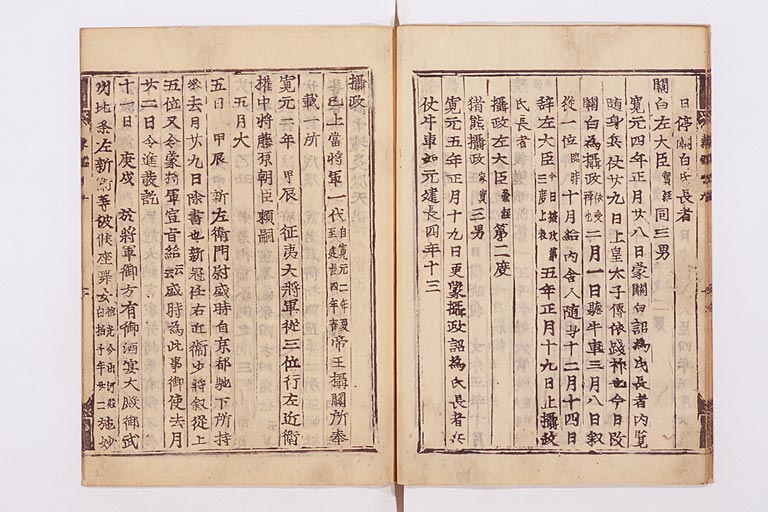 日停關白氏長者
關白左大臣實經同三男
寛元四年正月廿八日蒙關白詔為氏長者内覧
随身兵仗廿九日上皇太子傳依践祚也今日改
關白為攝政依受禅也二月一日聽牛車三月八日叙
從一位臨時十月給内舎人随身十二月十四日
辞左大臣今日攝政第三度上表五年正月十九日止攝政
氏長者
攝政左大臣兼經第二度
猪熊攝政家實三男
寛元五年正月十九日更蒙攝政詔為氏長者兵
仗牛車如元建長四年十三
攝政
已上當將軍一代自寛元二年夏至建長四年春帝王攝關所奉
載一所
寛元二年甲辰征夷大將軍從三位行左近衛
權中將藤原朝臣頼嗣
五月大乙
五日甲辰新左衛門尉盛時自京都馳下所持
参去月廿九日除書也新冠任右近衛少將叙從上
五位又令蒙將軍宣旨給云云盛時為此事御使去月
廿二日令進發訖
十一日庚戌於將軍御方有御酒宴大殿御武
州北条左新衛等被候座舞女施妙